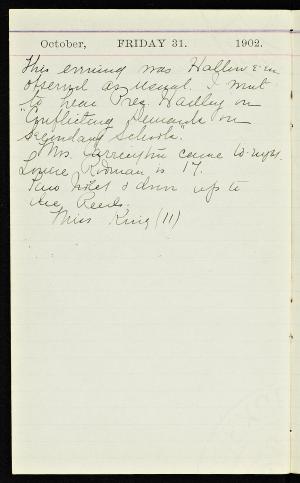 October, FRIDAY 31. 1902.
This evening was Hallow e'en
observed as usual. I went
to hear Pres. Hadley on
"Conflicting Demands on
Secondary Schools".
Mrs. came to-night.
Louise Rodman is 17.
& drove up to
the Reeds.
Miss King (11)